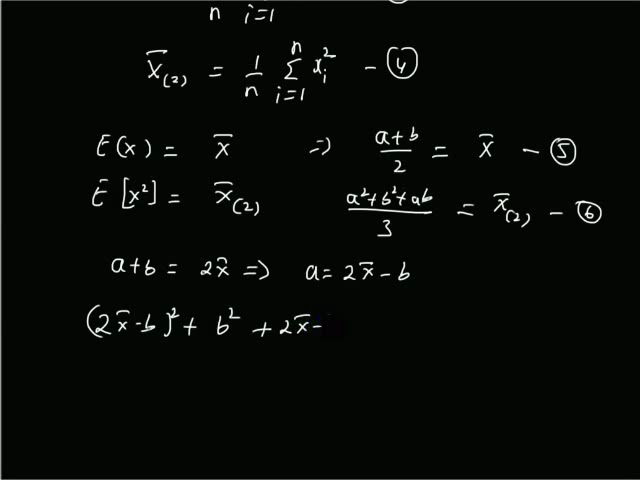 n i=1
X̄₍₂₎ = 1/n ∑ⁿᵢ₌₁ xᵢ² - ④
E(x) = x̄ => a+b/2 = x̄ - ⑤
E[x²] = x̄₍₂₎ a²+b²+ab/3 = x̄₍₂₎ - ⑥
a+b = 2x̄ => a = 2x̄ - b
(2x̄-b)² + b² + 2x̄-